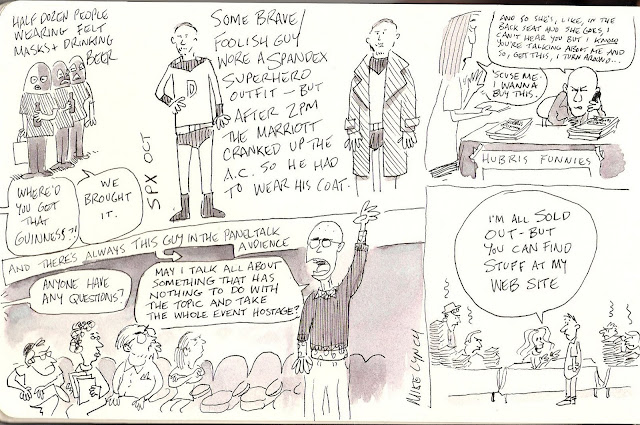 HALF DOZEN PEOPLE
WEARING FELT
MASKS + DRINKING
BEER
WHERE'D
YOU GET
THAT
GUINNESS?
WE
BROUGHT
IT.
SPX OCT
D
SOME BRAVE/
FOOLISH GUY
WORE A SPANDEX
SUPERHERO
OUTFIT — BUT
AFTER 2PM
THE MARRIOTT
CRANKED UP THE
A.C. SO HE HAD
TO WEAR HIS COAT.
AND SO SHE'S, LIKE, IN THE
BACK SEAT AND SHE GOES, I
CAN'T HEAR YOU BUT I KNOW
YOU'RE TALKING ABOUT ME AND
SO, GET THIS, I TURN AROUND...
'SCUSE ME.
I WANNA
BUY THIS.
HUBRIS FUNNIES
AND THERE'S ALWAYS THIS GUY IN THE PANEL TALK
AUDIENCE
ANYONE HAVE
ANY QUESTIONS?
MAY I TALK ALL ABOUT
SOMETHING THAT HAS
NOTHING TO DO WITH
THE TOPIC AND TAKE
THE WHOLE EVENT HOSTAGE?
MIKE LYNCH
I'M ALL SOLD
OUT - BUT
YOU CAN FIND
STUFF AT MY
WEB SITE